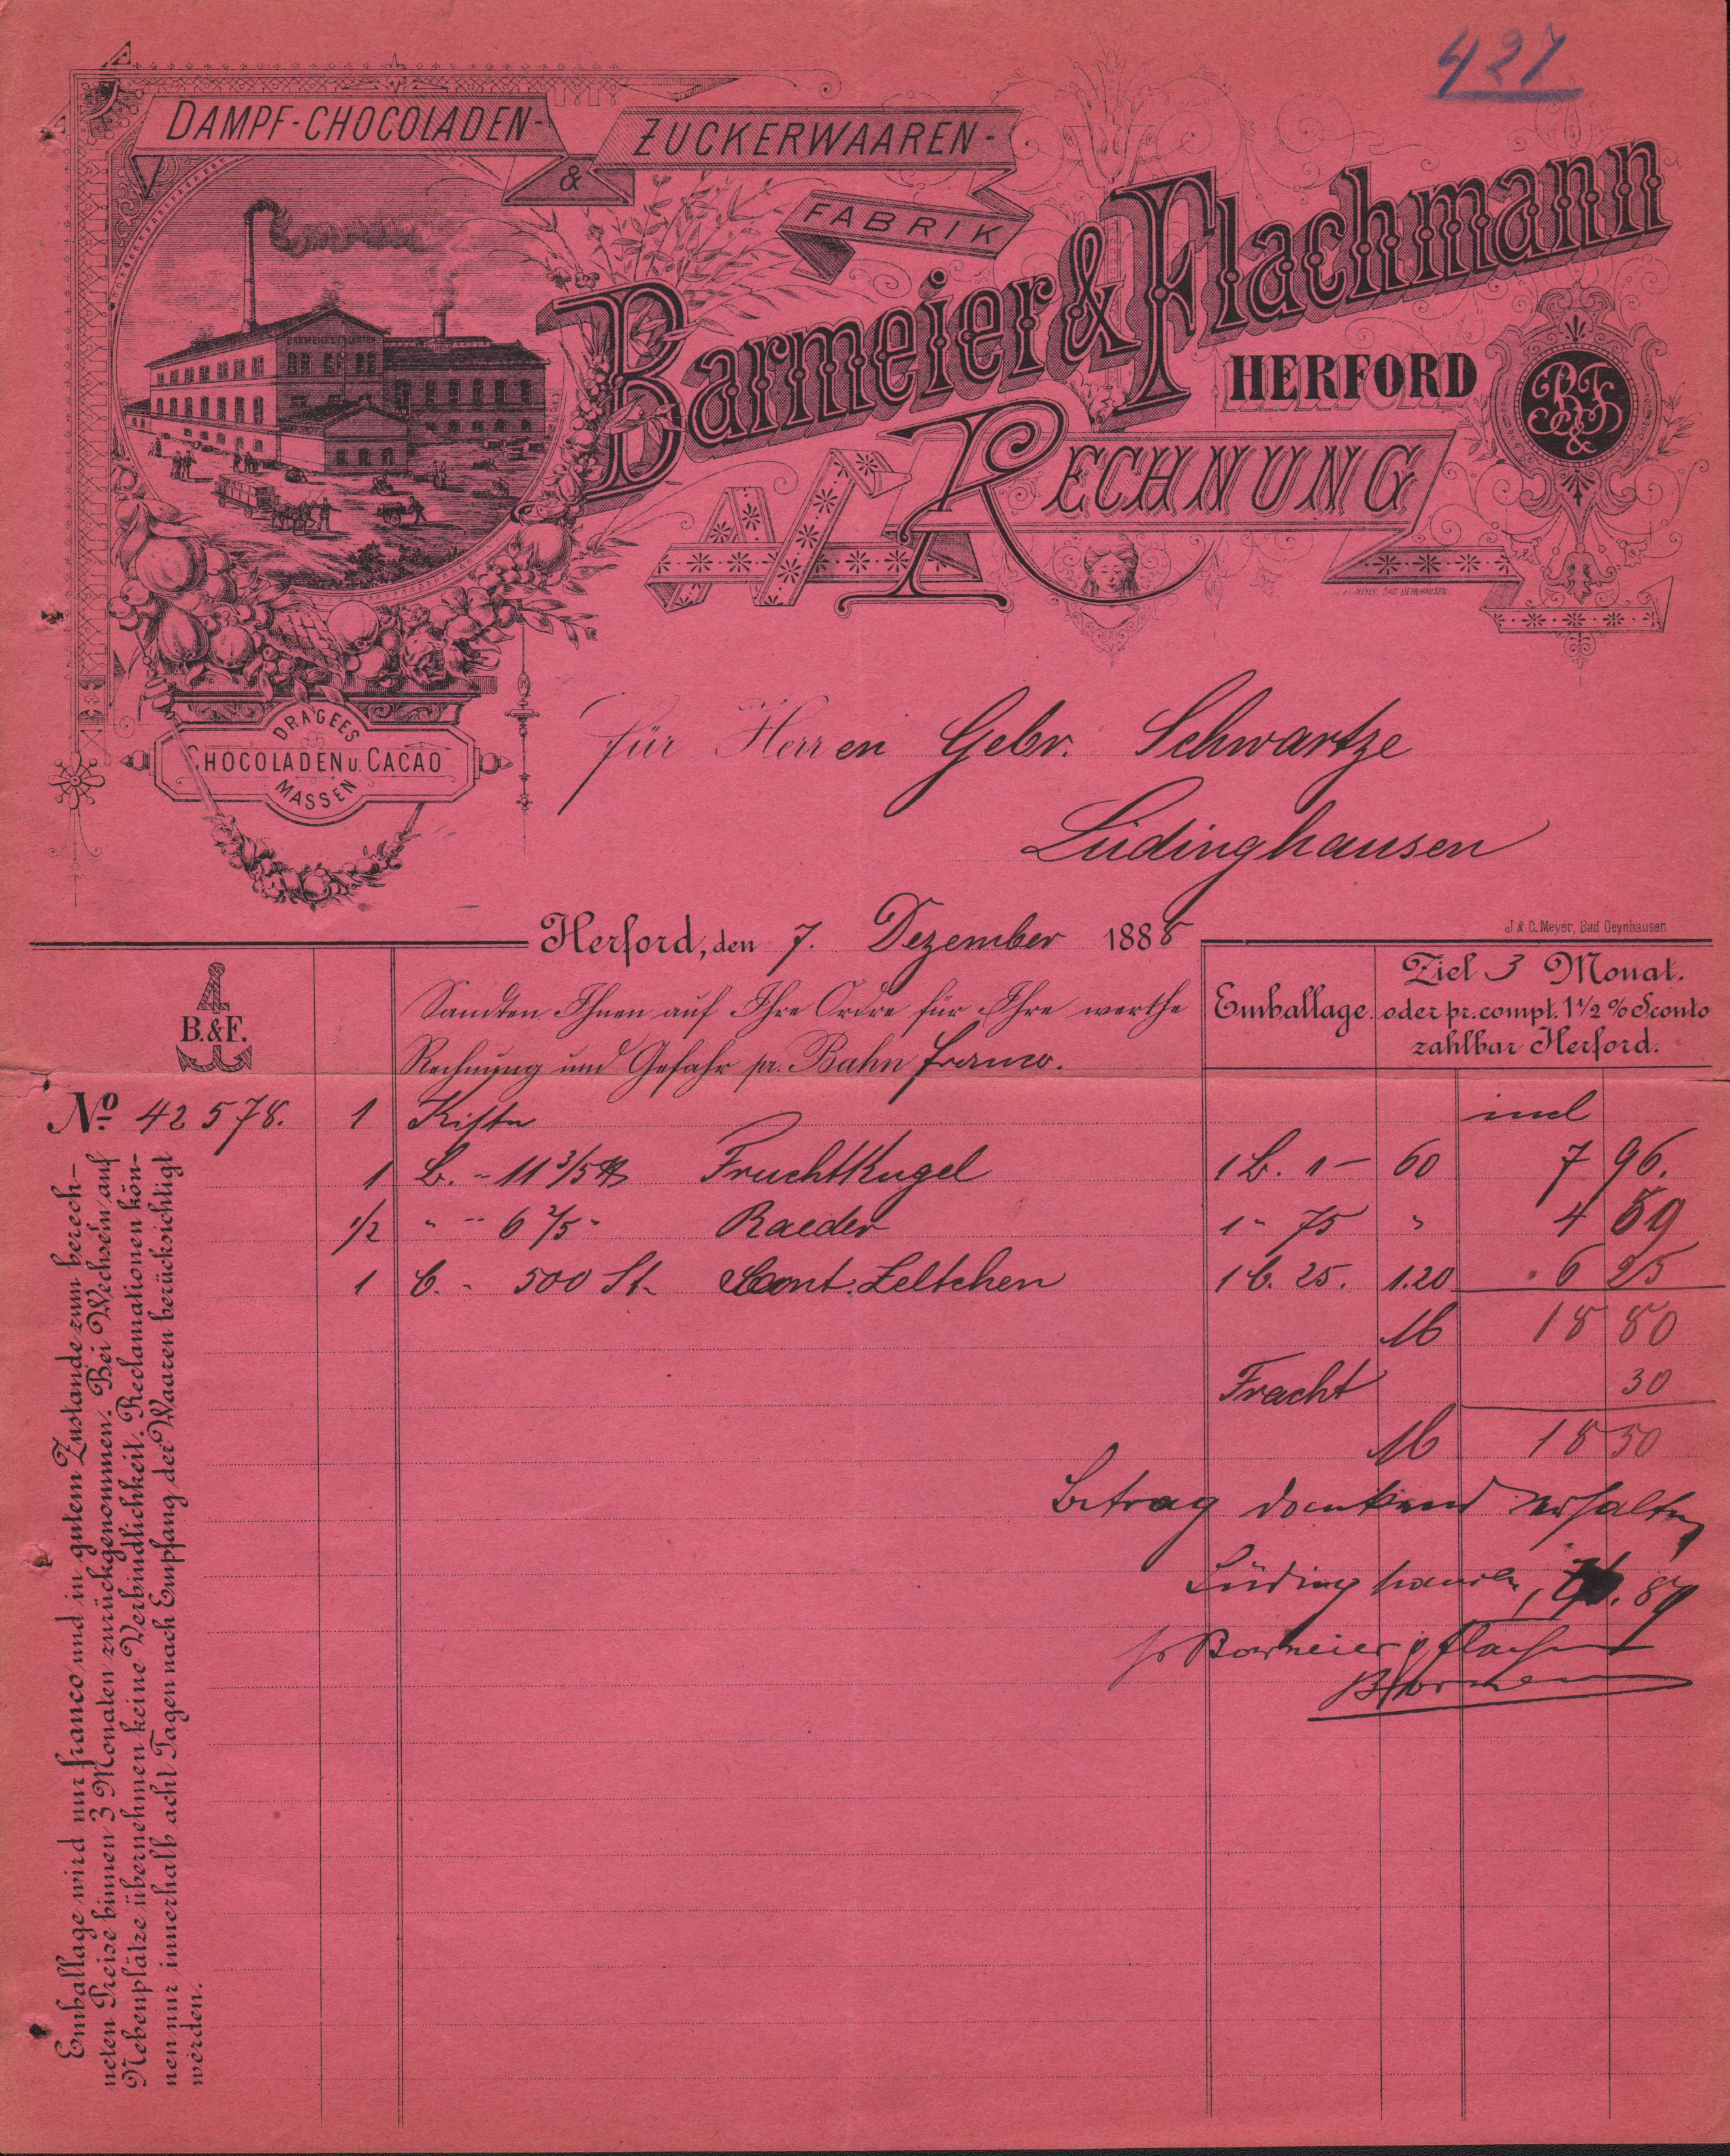 427
DAMPF-CHOCOLADEN-
&
ZUCKERWAAREN-
FABRIK
Barmeier & Flachmann
HERFORD
B & F
RECHNUNG
BARMEIER & FLACHMANN
DRAGEES
CHOCOLADEN u. CACAO
MASSEN
für Herren Gebr. Schwartze
Lüdinghausen
J. & C. Meyer, Bad Oeynhausen
Herford, den 7. Dezember 1888
B. & F.
Sandten Ihnen auf Ihre Ordre für Ihre werthe
Rechnung und Gefahr pr. Bahn franco.
Emballage.
Ziel 3 Monat.
oder pr. compt. 1 1/2 % Sconto
zahlbar Herford.
No. 42578. 1 Kiste incl
1 B. - 11 3/5 ℔ Fruchtkugel 1 B. 1 - 60 7 96.
1/2 " - 6 2/5 " Raeder 1 " 75 " 4 59
1 C. - 500 St. Cont. Zeltchen 1 C. 25. 1.20 6 25
M 18 80
Fracht 30
M 18 50
Betrag dankend erhalten
Lüdinghausen, 89
Barmeier & Flachmann
Emballage wird nur franco und in gutem Zustande zum berech-
neten Preise binnen 3 Monaten zurückgenommen. Bei Wechseln auf
Nebenplätze übernehmen keine Verbindlichkeit. Reclamationen kön-
nen nur innerhalb acht Tagen nach Empfang der Waaren berücksichtigt
werden.